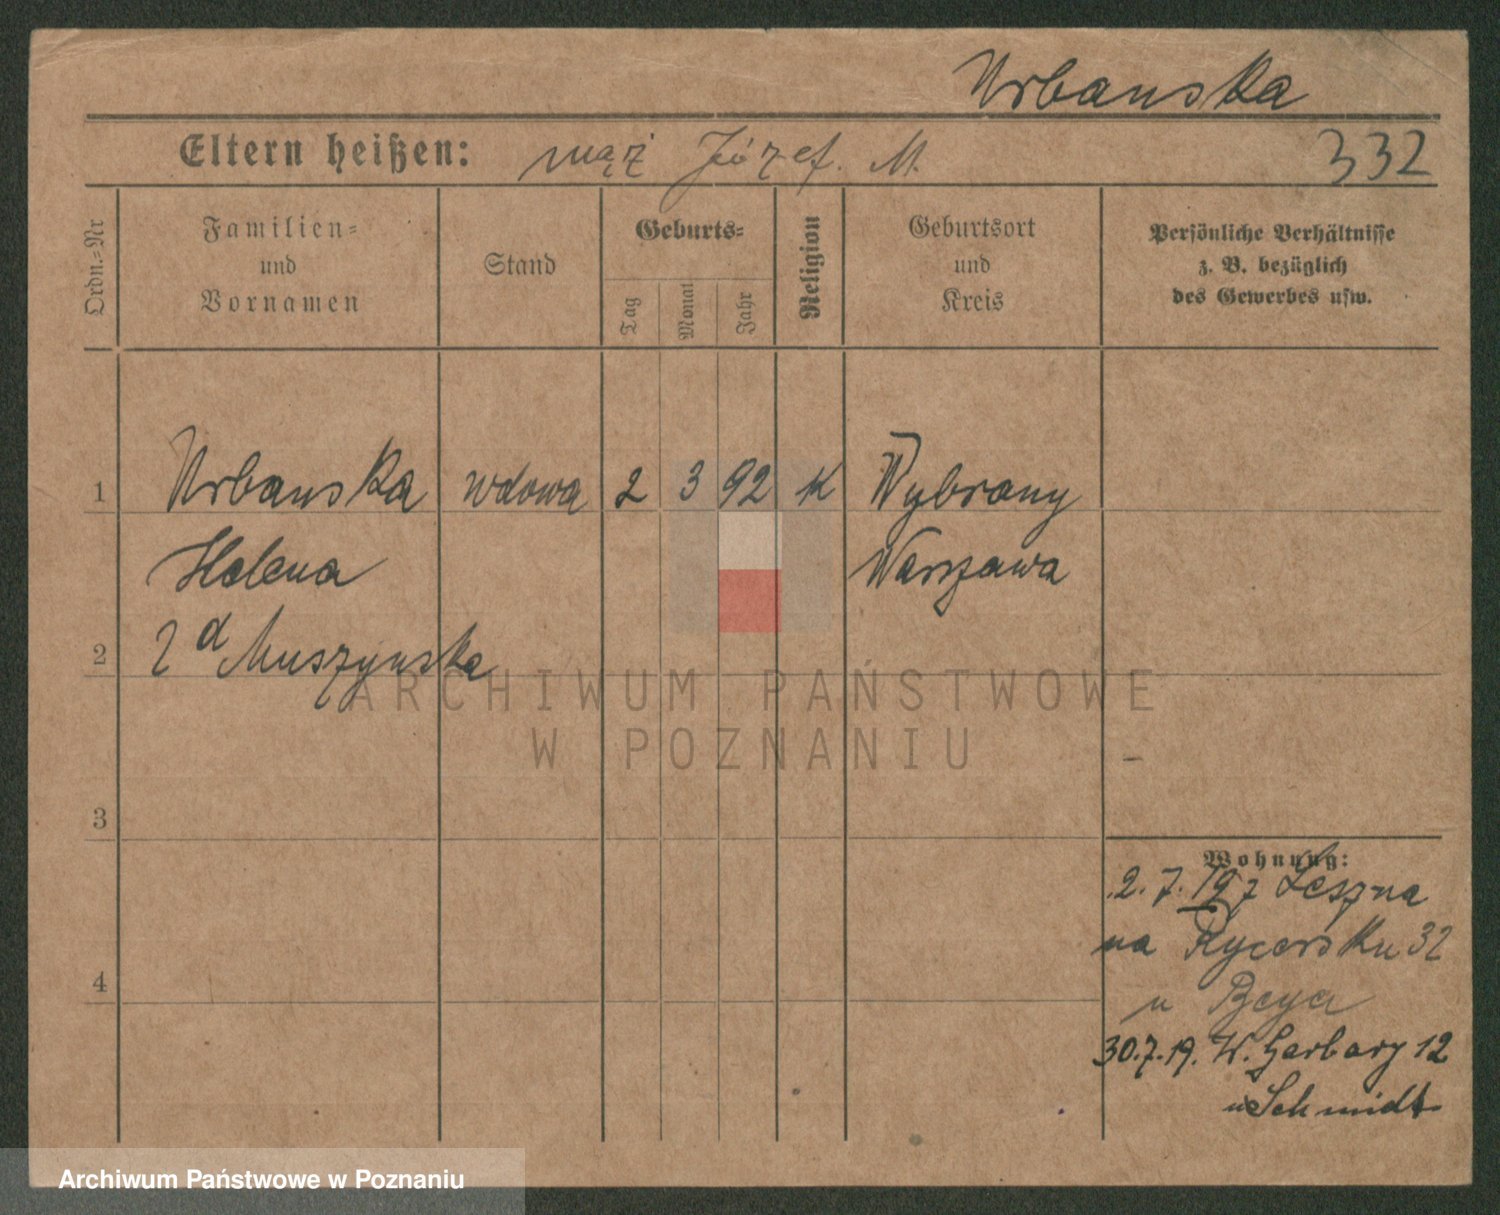 Urbanska
Eltern heißen: mąż Józef. M.
332
Ordn.-Nr
Familien-
und
Vornamen
Stand
Geburts-
Tag
Monat
Jahr
Religion
Geburtsort
und
Kreis
Persönliche Verhältnisse
z. B. bezüglich
des Gewerbes usw.
1 Urbanska wdowa 2 3 92 K Wybrany
Helena Warszawa
2 Muszynska
ARCHIWUM PAŃSTWOWE
W POZNANIU
3
Wohnung:
2. 7. 19 z Leszna
na Rycersku 32
u Beya
4
30.7.19. W. Garbary 12
u Schmidt
Archiwum Państwowe w Poznaniu